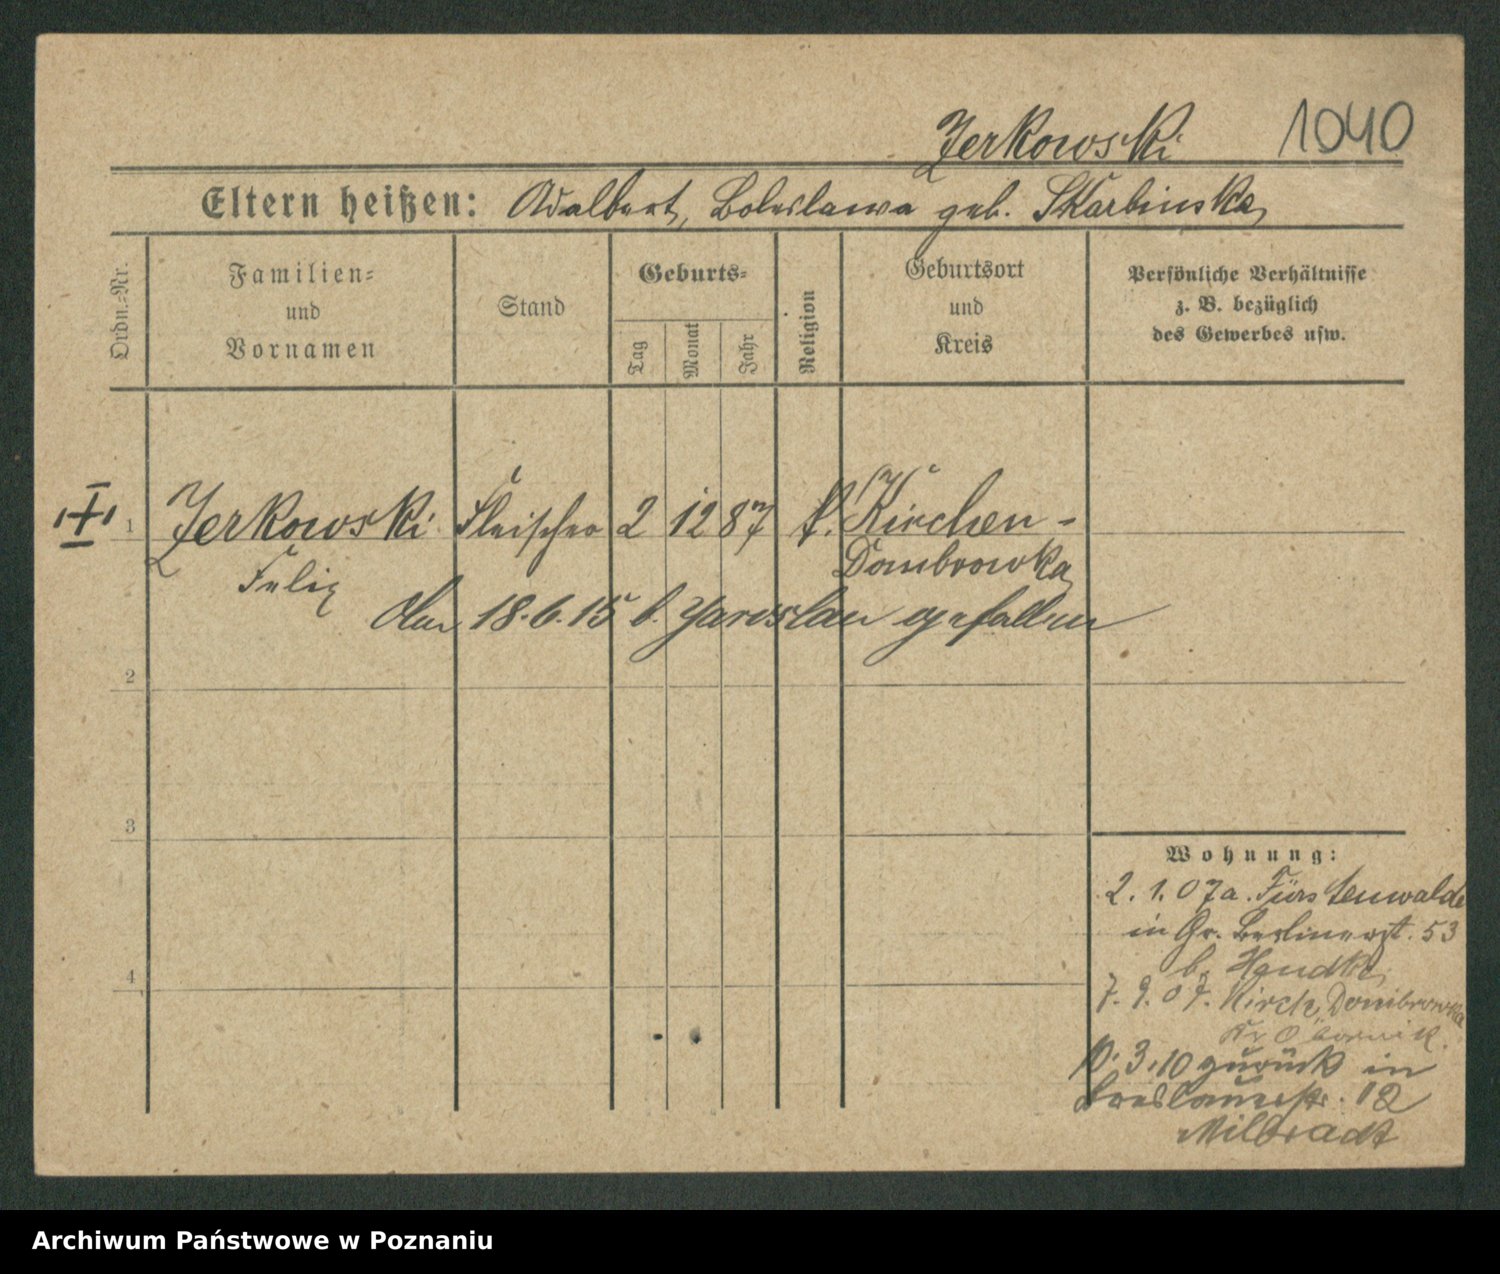 Zerkowski 1040
Eltern heißen: Adalbert, Boleslawa geb. Skarbinska
Ordn.=Nr.
Familien=
und
Vornamen
Stand
Geburts=
Tag
Monat
Jahr
Religion
Geburtsort
und
Kreis
Persönliche Verhältnisse
z. B. bezüglich
des Gewerbes usw.
1 Zerkowski Fleischer 2 12 87 k. Kirchen-
Felix Dombrowka
Am 18.6.15 b. Jaroslau gefallen
2
3
4
Wohnung:
2. 1. 07 a. Fürstenwalde
in Gr. Berlinerst. 53
b. Handke
7. 9. 07. Kirch. Dombrowka
Kr Obornik.
10. 3. 10 zurück in
Breslauerstr. 12
Milbradt
Archiwum Państwowe w Poznaniu